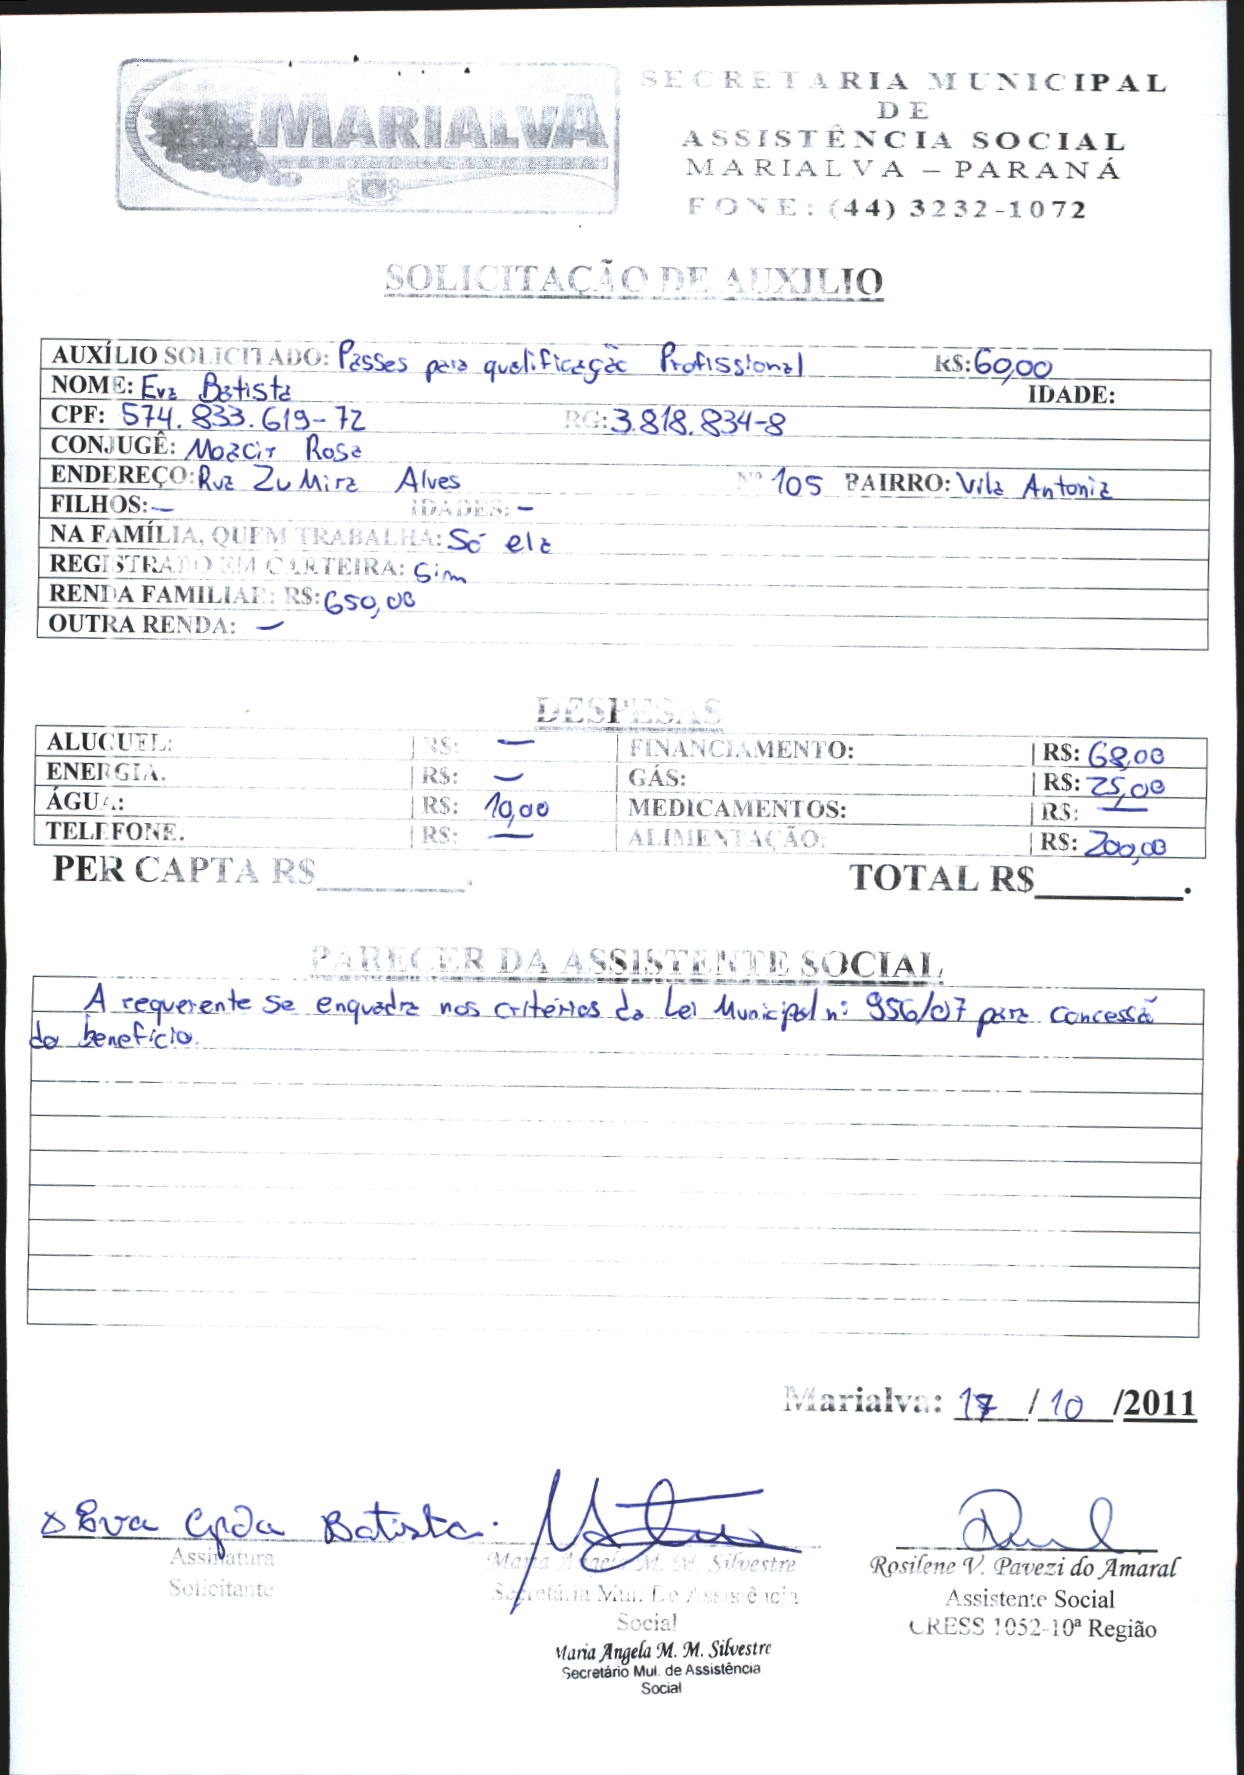 MARIALVA
SECRETARIA MUNICIPAL
DE
ASSISTÊNCIA SOCIAL
MARIALVA – PARANÁ
FONE: (44) 3232-1072
SOLICITAÇÃO DE AUXILIO
AUXÍLIO SOLICITADO: Passes para qualificação Profissional R$: 60,00
NOME: Eva Batista IDADE:
CPF: 574.833.619-72 RG: 3.818.834-8
CONJUGÊ: Moacir Rosa
ENDEREÇO: Rua Zumira Alves Nº 105 BAIRRO: Vila Antonia
FILHOS: — IDADES: —
NA FAMÍLIA, QUEM TRABALHA: Só ela
REGISTRADO EM CARTEIRA: Sim
RENDA FAMILIAR: R$: 650,00
OUTRA RENDA: —
DESPESAS
ALUGUEL: R$: — FINANCIAMENTO: R$: 68,00
ENERGIA: R$: — GÁS: R$: 25,00
ÁGUA: R$: 10,00 MEDICAMENTOS: R$: —
TELEFONE: R$: — ALIMENTAÇÃO: R$: 200,00
PER CAPTA R$ ________. TOTAL R$ ________.
PARECER DA ASSISTENTE SOCIAL
A requerente se enquadra nos critérios da Lei Municipal nº 956/07 para concessã
do benefício.
Marialva: 17 / 10 /2011
Eva Cpda Batista.
Assinatura
Solicitante
Maria Angela M. M. Silvestre
Secretária Mul. De Assistência
Social
Maria Angela M. M. Silvestre
Secretário Mul. de Assistência
Social
Rosilene V. Pavezi do Amaral
Assistente Social
CRESS 1052-10ª Região